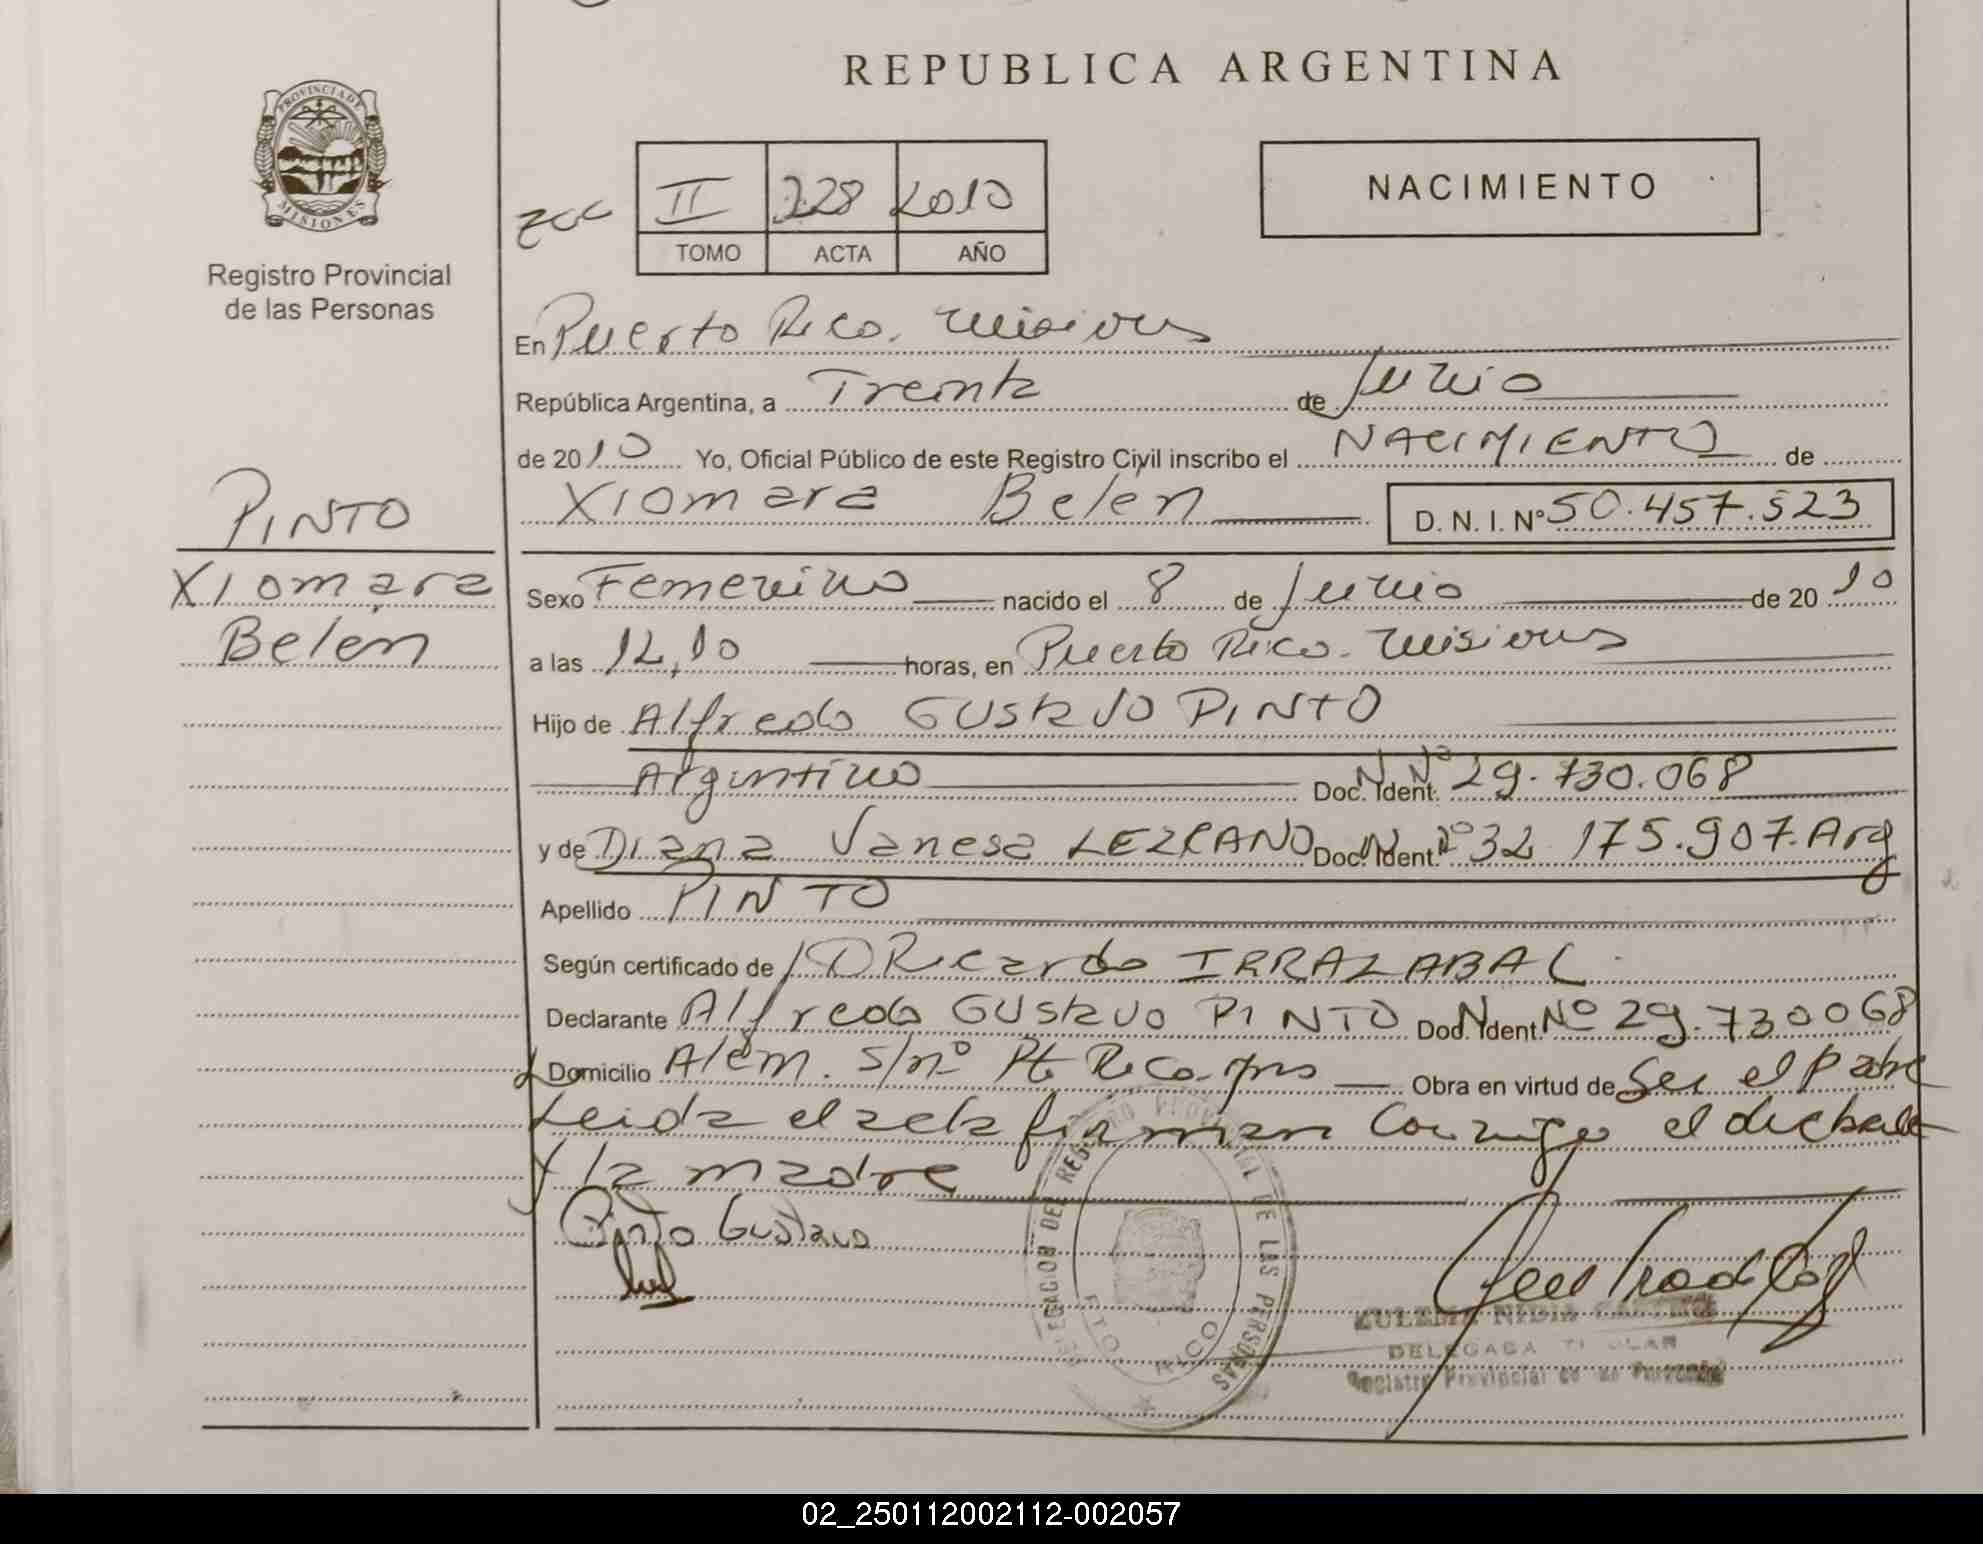 REPUBLICA ARGENTINA
PROVINCIA DE
MISIONES
Registro Provincial
de las Personas
II 228 2010
TOMO ACTA AÑO
NACIMIENTO
En Puerto Rico. Misiones
República Argentina, a Treinta de Junio
de 2010 Yo, Oficial Público de este Registro Civil inscribo el NACIMIENTO de
Xiomara Belén D. N. I. Nº 50.457.523
PINTO
Xiomara
Belén
Sexo Femenino nacido el 8 de Junio de 2010
a las 12,10 horas, en Puerto Rico. Misiones
Hijo de Alfredo GUStavo PINTO
Argentino Doc. Ident. N Nº 29.730.068
y de Diana Vanesa LEZCANO Doc. Ident. N Nº 32 175.907. Arg
Apellido PINTO
Según certificado de DRicardo IRRAZABAL
Declarante Alfredo GUStavo PINTO Doc. Ident. N Nº 29.730068
Domicilio Alem. S/nº Pto Rico. Mnes Obra en virtud de Ser el padre
Leida el acta firman conmigo el declarante
y la madre
Pinto Gustavo
DELEGACION DEL REGISTRO PROVINCIAL DE LAS PERSONAS
PTO. RICO
ZULEMA NIDIA
DELEGADA TITULAR
Registro Provincial de las Personas
02_250112002112-002057